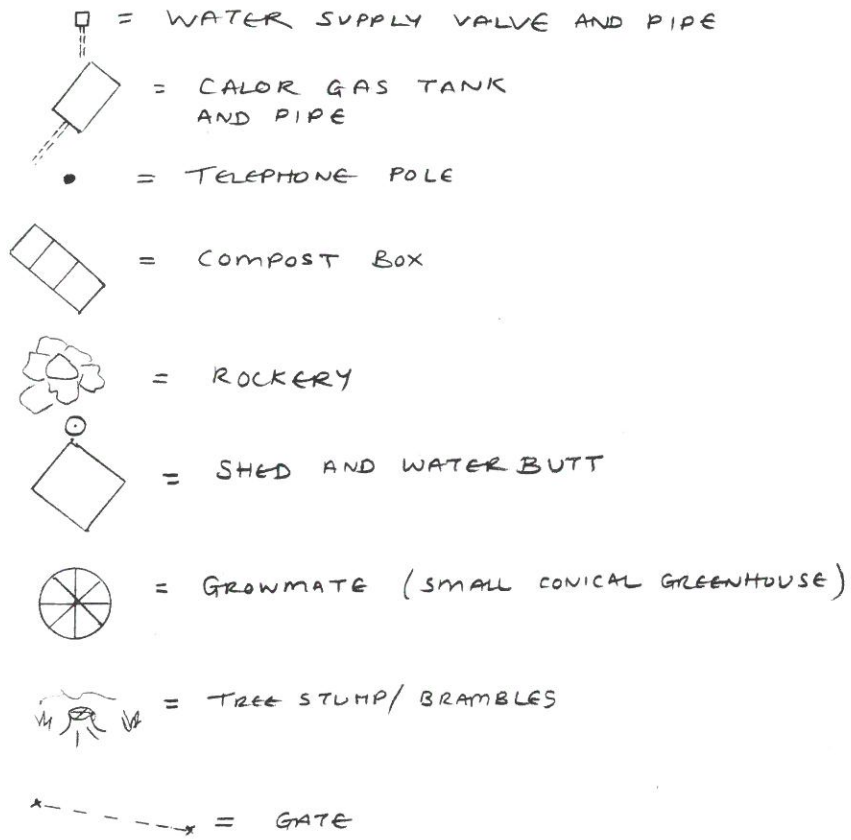 = WATER SUPPLY VALVE AND PIPE
= CALOR GAS TANK
AND PIPE
= TELEPHONE POLE
= COMPOST BOX
= ROCKERY
= SHED AND WATER BUTT
= GROWMATE (SMALL CONICAL GREENHOUSE)
= TREE STUMP/ BRAMBLES
= GATE